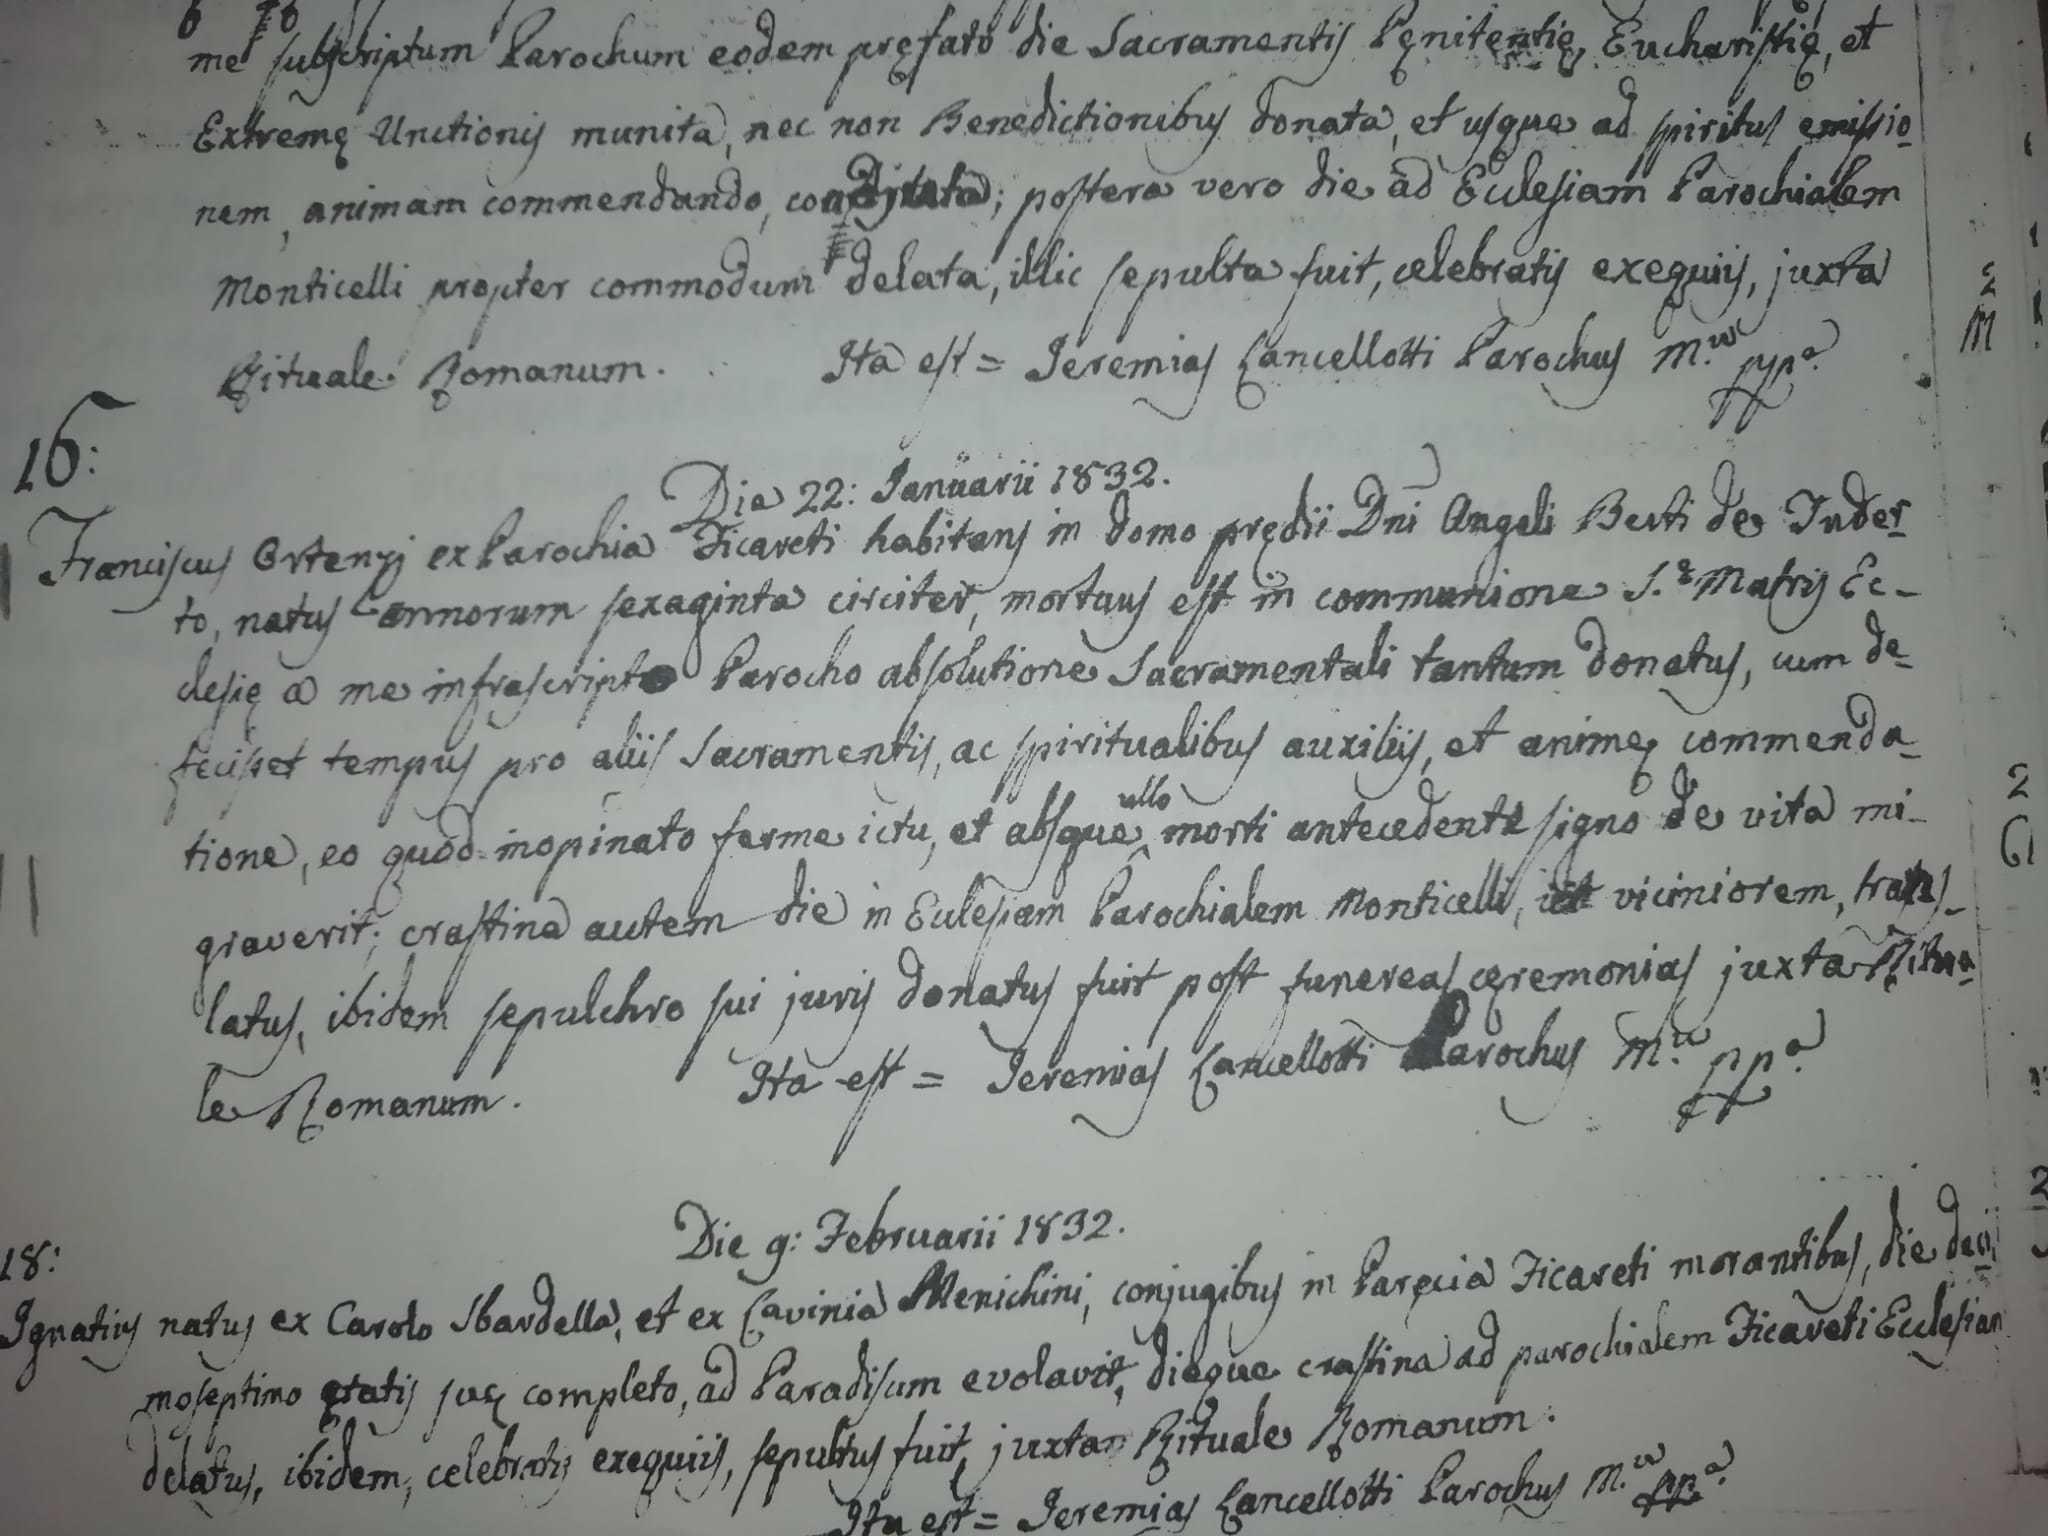 me subscriptum Parochum eodem pręfato die Sacramentis Pęnitentię, Eucharistię, et
Extremę Unctionis munita, nec non Benedictionibus donata, et usque ad spiritus emissio-
nem, animam commendando, postera vero die ad Eclesiam Parochialem
Monticelli propter commodum delata, illic sepulta fuit, celebratis exequiis, juxta
Rituale Romanum. Ita est = Jeremias Cancellotti Parochus m.
16:
Die 22: Januarii 1832.
Franciscus Ortenzj ex Parochia Ficareti habitans in domo prędii Dni Angeli Berti de Tuder-
to, natus annorum sexaginta circiter, mortuus est in communione S. Matris Ec-
clesię a me infrascripto Parocho absolutione Sacramentali tantum donatus, cum de-
fecisset tempus pro aliis Sacramentis, ac spiritualibus auxiliis, et animę commenda-
tione, eo quod inopinato ferme ictu, et absque ullo morti antecedente signo de vita mi-
graverit; crastina autem die in Eclesiam Parochialem Monticelli, viciniorem, trans-
latus, ibidem sepulchro sui juris donatus fuit post funereas cęremonias juxta Ritua-
le Romanum. Ita est = Jeremias Cancellotti Parochus m. pp.a
18:
Die 9: Februarii 1832.
Ignatius natus ex Carolo Sbardella, et ex Lavinia Menichini, conjugibus in Paręcia Ficareti morantibus, die deci-
moseptimo ętatis suę completo, ad Paradisum evolavit, dieque crastina ad parochialem Ficareti Ecclesiam
delatus, ibidem, celebratis exequiis, sepultus fuit, juxta Rituale Romanum.
Ita est = Jeremias Cancellotti Parochus m.